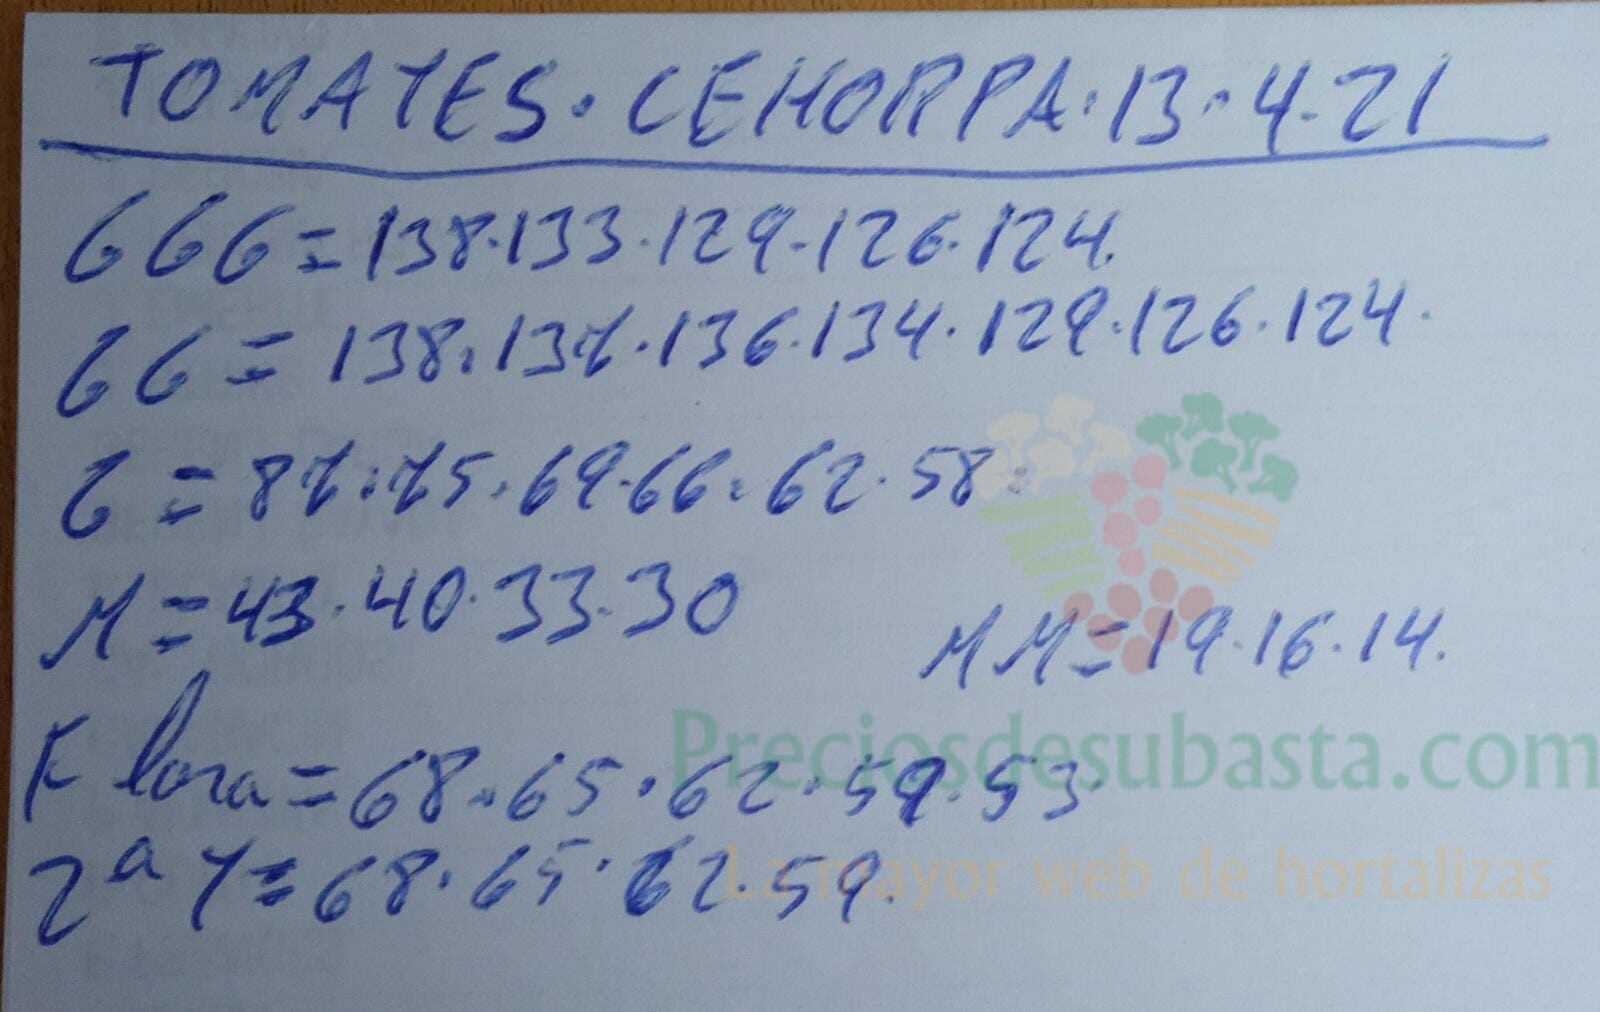 TOMATES · CEHORPA · 13 · 4 · 21
GGG = 138 · 133 · 129 · 126 · 124.
GG = 138 · 137 · 136 · 134 · 129 · 126 · 124.
G = 87 · 75 · 69 · 66 · 62 · 58 ·
M = 43 · 40 · 33 · 30
MM = 19 · 16 · 14.
Flora = 68 · 65 · 62 · 59 · 53 ·
2ª Y = 68 · 65 · 62 · 59.
Preciosdesubasta.com
La mayor web de hortalizas